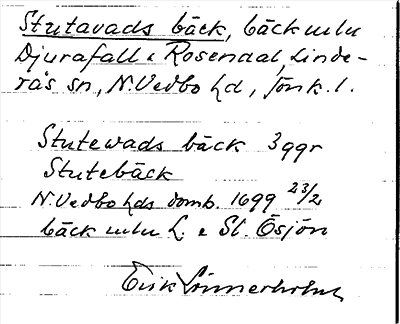 Stutavads bäck, bäck mln
Djurafall o Rosendal, Linde-
rås sn, N. Vedbo hd, Jönk. l.
Stutewads bäck 3 ggr
Stutebäck
N. Vedbo hds domb. 1699 23/2
bäck mln L. o St. Ösjön
Erik Linnerholm